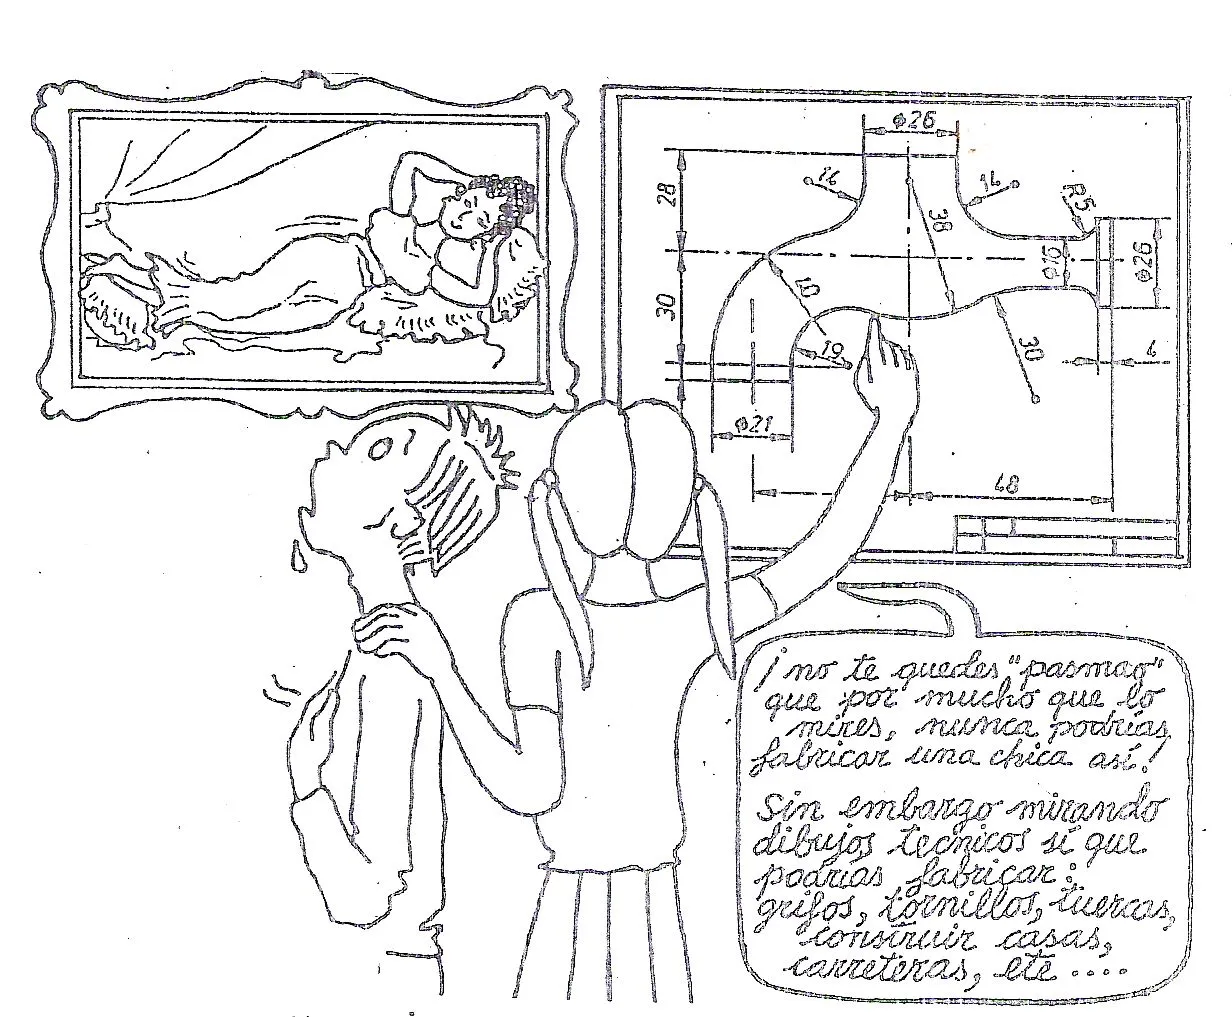 ϕ26
28
14
14
38
R5
ϕ16
ϕ26
40
30
19
30
4
ϕ21
48
¡no te quedes "pasmao"
que por mucho que lo
mires, nunca podrías
fabricar una chica así!
Sin embargo mirando
dibujos tecnicos sí que
podrías fabricar:
grifos, tornillos, tuercas,
construir casas,
carreteras, etc ....